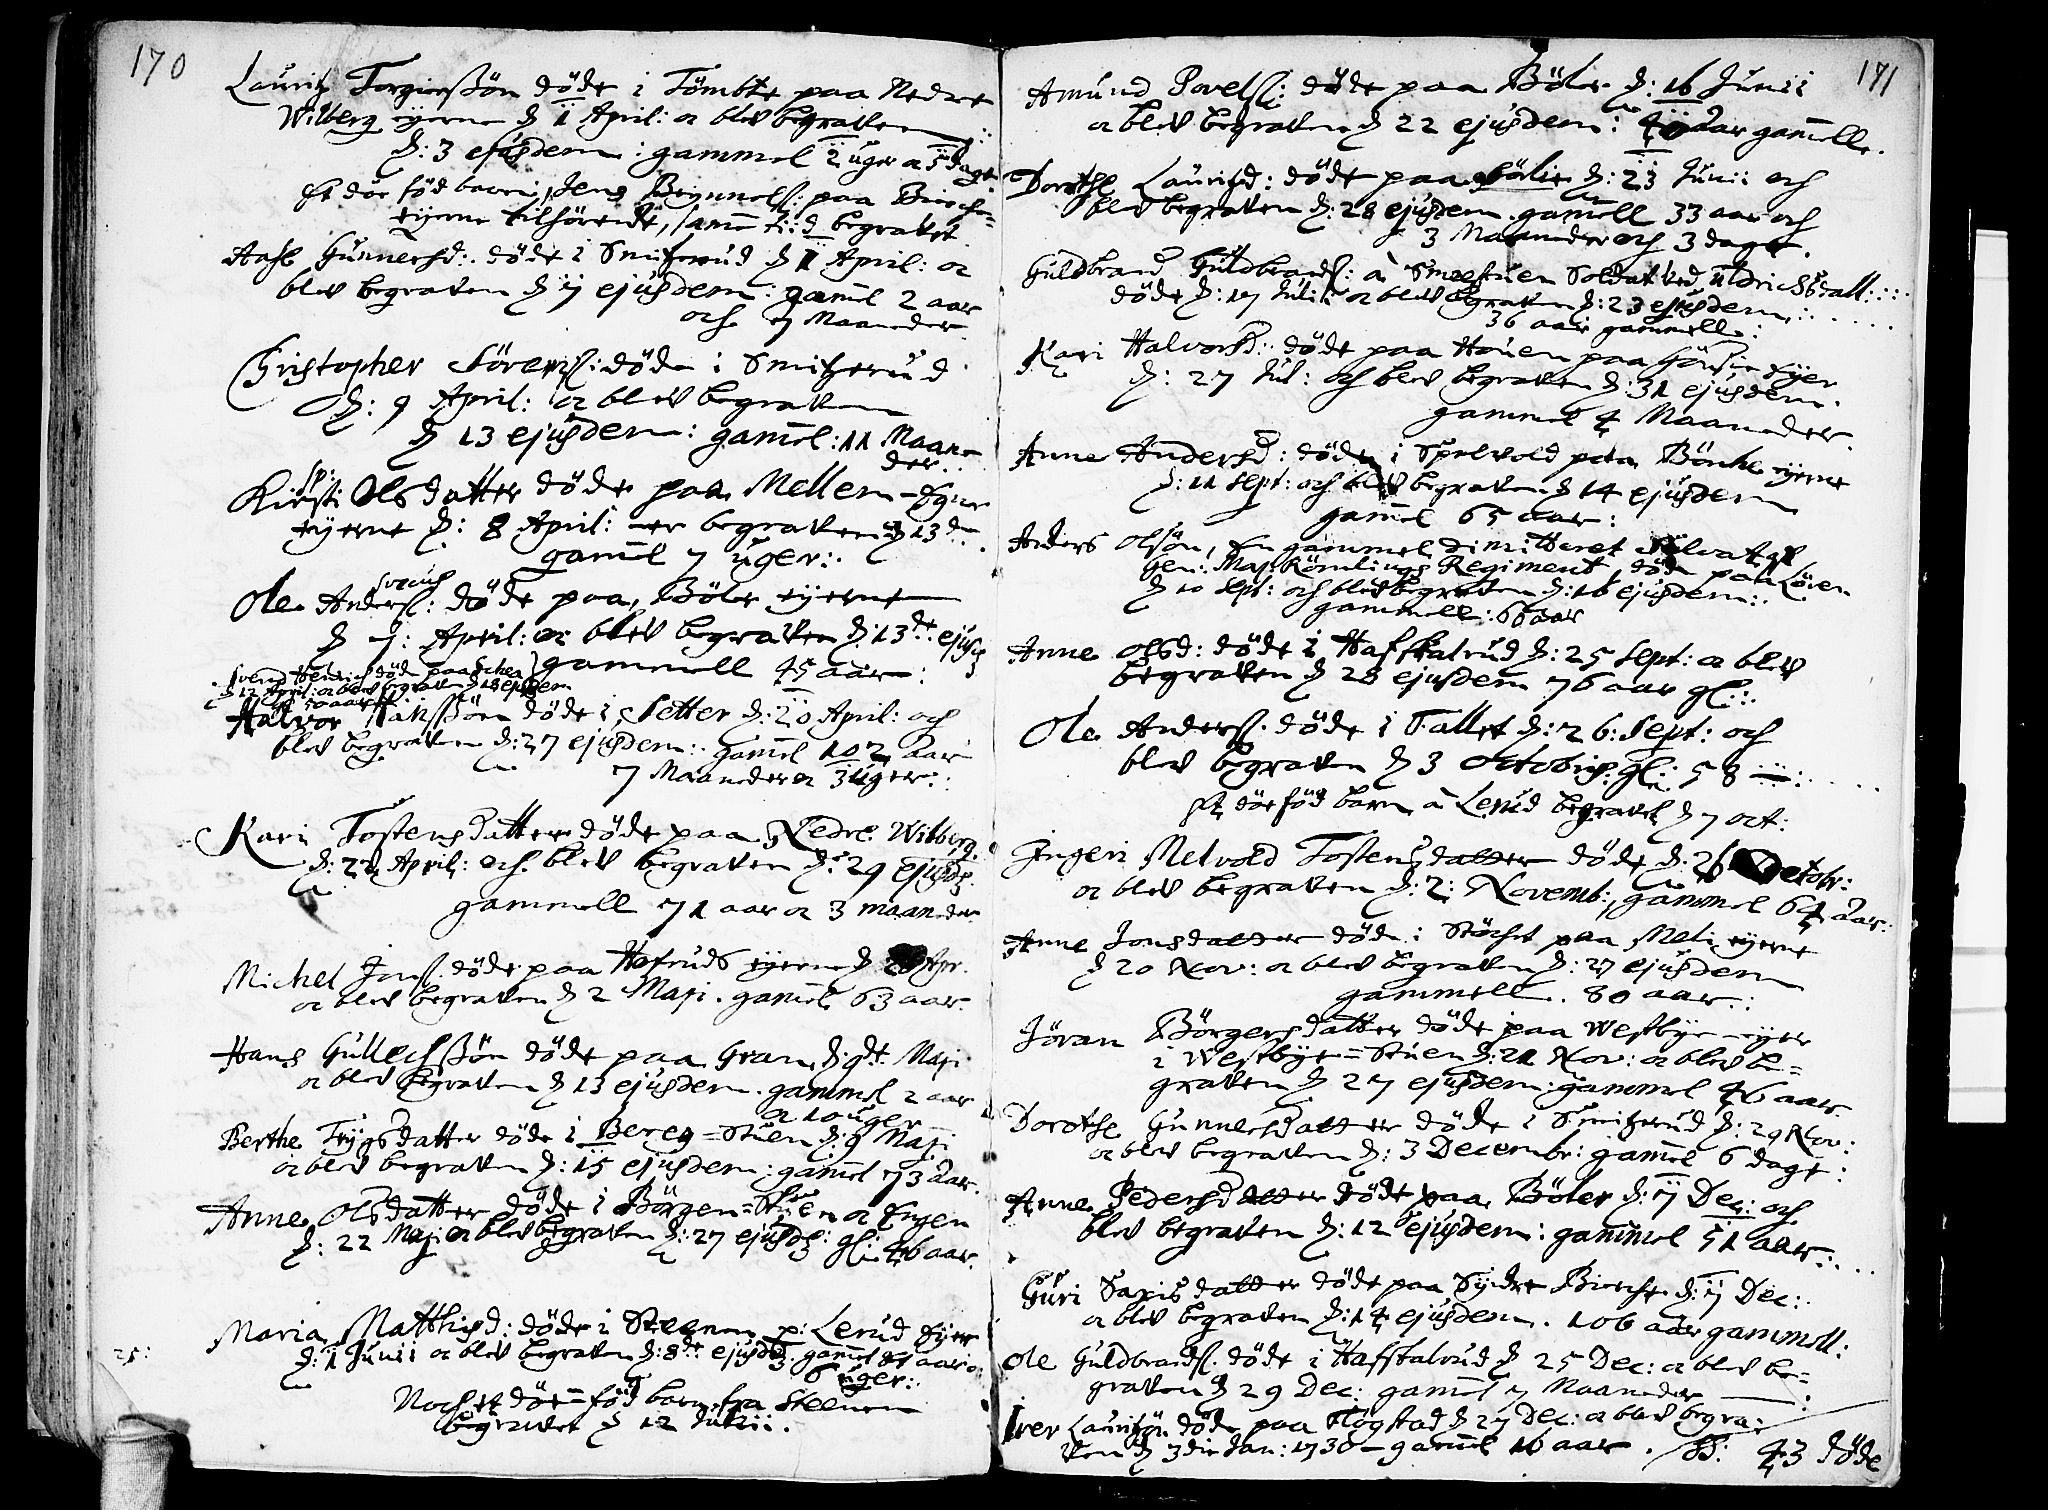 170
Lauritz Torgierssön döde i Tömbte paa Nedre
Wilberg eyerne d 1 April: oc blev begraven
d: 3 ejusdem: gammel 2 uger oc 5 dage
Et döe föd barn, Jens paa Bierche-
eyerne tilhörende, samme tid begravet
Aase Gunnersd: döde i Smitzerud d 1 April: oc
blev begraven d 7 ejusdem: gamel 2 aar
och 7 Maaneder
Christopher Sörenss: döde i Smitzerud
d: 9 April: oc blev begraven
d 13 ejusdem: gamel: 11 Maane-
der
Kiersti Olsdatter döde paa Mellem-Egner
eyerne d: 8 April: er begraven d 13de
gamel 7 uger:
Ole Anderss: döde paa Böler eyerne
d 7: April: oc blev begraven d: 13de ejusd
gammell 45 aar:
Svend döde paa
d 12 April: oc blev begraven d 18 ejusdem
50 aar
Halvor Hanssön döde i Setter d: 20 April: och
blev begraven d: 27 ejusdem: gamel 102 aar
7 Maaneder oc 3 uger:
Kari Tostensdatter döde paa Nedre Wilberg
d: 22 April: och blev begraven d: 29 ejusd:
gammell 71 aar oc 3 maaneder
Michel Jonss: döde paa Hofruds eyerne d Apr.
oc blev begraven d 2 Maji. gamel 63 aar.
Hans Gullechssön döde paa Gran d: 9de Maji
oc blev begraven d 13 ejusdem. gammel 2 aar
oc 10 uger
Berthe Trygsdatter döde i Bereg=Stuen d: 9 Maji
oc blev begraven d: 15 ejusdem: gamel 73 aar.
Anne Olsdatter döde i Börgen=Stuen oc Engen
d: 22 Maj: oc blev begraven d: 27 ejusd: gl: 46 aar.
Maria Matthisd: döde i Steenen p: Lerud Eyer
25:
d: 1 Junii oc blev begraven d: 8de ejusd: gamel aar oc
6 uger:
Noch et döe=föd barn fra Steenen
begravet d 12 Julii.
171
Amund Povelss: döde paa Böler d: 16 Junii
oc blev begraven d 22 ejusdem: aar gammell.
Dorothe Lauritzd: döde paa Sölie d: 23 Junii och
blev begraven d: 28 ejusdem gamell 33 aar och
3 Maaneder och 3 dage.
Guldbrand Guldbrandss: a Smestuen Soldat ved Uldrichsdall:
döde d: 17 Julii oc blev begraven d: 23 ejusdem
36 aar gammell:
Kari Halvorsd: döde paa Houen paa Eyer
d: 27 Jul: och blev begraven d: 31 ejusdem
gammel 4 Maaneder
Anne Andersd: döde i Spelvold paa Bönche eyerne
d: 11 Sept: och blev begraven d 14 ejusdem
gamel 65 aar:
Anders Olsön, En gammel dimitteret Salvatgt
Gen: Maj: Römlings Regiment, döde paa Löven
d 10 Sept: och blev begraven d: 16 ejusdem:
gammell: 66 aar
Anne Olsd: döde i Haffstalrud d: 25 Sept: oc blev
begraven d 28 ejusdem 76 aar gl:
Ole Anderss. döde i Fallet d: 26: Sept: och
blev begraven d 3 octobris: gl: 58
Et döe föd barn a Lerud begravet d 7 oct:
Ingeri Melvold Tostensdatter döde d: 26 Octobr:
oc blev begraven d: 2: Novemb: gammel 64 aar:
Anne Jonsdatter döde i Stöchet paa Meli eyerne
d 20 Nov: oc blev begraven d: 27 ejusdem
gammell. 80 aar:
Jöran Börgersdatter döde paa Westbye-eyer
i Westbye=Stuen d: 21 Nov: oc blev be=
graven d 27 ejusdem: gammel 46 aar.
Dorothe Gunnersdatter döde i Smitzerud d: 29 Nov:
oc blev begraven d: 3 Decembr: gamel 6 dage:
Anne Pedersdatter döde paa Böler d: 7 Dec: och
blev begraven d: 12 ejusdem: gammel 51 aar:
Guri Saxisdatter döde paa Syndre Bierche d: 7 Dec:
oc blev begraven d: 14 ejusdem. 106 aar gammell:
Ole Guldbrandss. döde i Haffstalrud d 25 Dec: oc blev be=
graven d 29 Dec: gamel 7 Maaneder
Iver Lauritzön döde paa Hogstad d 27 Dec: oc blev begra=
ven d 3die Jan: 1730 - gamel 16 aar. 43 döde